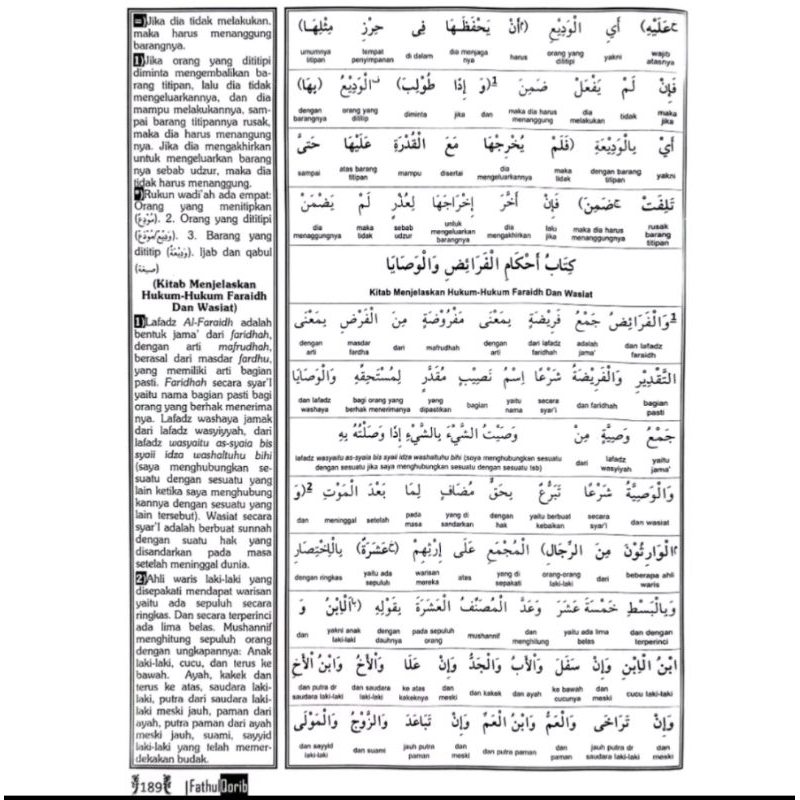 Jika dia tidak melakukan,
maka harus menanggung
barangnya.
1)Jika orang yang dititipi
diminta mengembalikan ba-
rang titipan, lalu dia tidak
mengeluarkannya, dan dia
mampu melakukannya, sam-
pai barang titipannya rusak,
maka dia harus menangung
nya. Jika dia mengakhirkan
untuk mengeluarkan barang
nya sebab udzur, maka dia
tidak harus menanggung.
Rukun wadi'ah ada empat:
Orang yang menitipkan
(مُوْدِعْ). 2. Orang yang dititipi
(وَدِيْعْ/مُوْدَعْ). 3. Barang yang
dititip (وَدِيْعَةْ). Ijab dan qabul
(صيغة)
(Kitab Menjelaskan
Hukum-Hukum Faraidh
Dan Wasiat)
1)Lafadz Al-Faraidh adalah
bentuk jama' dari faridhah,
dengan arti mafrudhah,
berasal dari masdar fardhu,
yang memiliki arti bagian
pasti. Faridhah secara syar'I
yaitu nama bagian pasti bagi
orang yang berhak menerima
nya. Lafadz washaya jamak
dari lafadz wasyiyyah, dari
lafadz wasyaitu as-syaia bis
syaii idza washaltuhu bihi
(saya menghubungkan se-
suatu dengan sesuatu yang
lain ketika saya menghubung
kannya dengan sesuatu yang
lain tersebut). Wasiat secara
syar'I adalah berbuat sunnah
dengan suatu hak yang
disandarkan pada masa
setelah meninggal dunia.
2)Ahli waris laki-laki yang
disepakati mendapat warisan
yaitu ada sepuluh secara
ringkas. Dan secara terperinci
ada lima belas. Mushannif
menghitung sepuluh orang
dengan ungkapannya: Anak
laki-laki, cucu, dan terus ke
bawah. Ayah, kakek dan
terus ke atas, saudara laki-
laki, putra dari saudara laki-
laki meski jauh, paman dari
ayah, putra paman dari ayah
meski jauh, suami, sayyid
laki-laki yang telah memer-
dekakan budak.
عَلَيْهِ) أَيِ الْوَدِيْعِ (أَنْ يَحْفَظَهَا فِى حِرْزِ مِثْلِهَا)
wajib atasnya yakni orang yang dititipi harus dia menjaga nya di dalam tempat penyimpanan umumnya titipan
فَإِنْ لَمْ يَفْعَلْ ضَمِنَ 1(وَ إِذَا طُوْلِبَ) الْوَدِيْعُ (بِهَا)
maka jika tidak dia melakukan maka dia harus menanggung dan jika diminta orang yang ditiip dengan barangnya
أَيْ بِالْوَدِيْعَةِ (فَلَمْ يُخْرِجْهَا مَعَ الْقُدْرَةِ عَلَيْهَا حَتَّى
yakni dengan barang titipan maka tidak dia mengeluarkannya disertai mampu atas barang titipan sampai
تَلِفَتْ ضَمِنَ) فَإِنْ أَخَّرَ إِخْرَاجَهَا لِعُذْرٍ لَمْ يَضْمَنْ
rusak barang titipan maka dia harus menanggungnya lalu jika dia mengakhirkan untuk mengeluarkan barangnya sebab udzur maka tidak dia menaggungnya
كِتَابُ أَحْكَامِ الْفَرَائِضِ وَالْوَصَايَا
Kitab Menjelaskan Hukum-Hukum Faraidh Dan Wasiat
1وَالْفَرَائِضُ جَمْعُ فَرِيْضَةٍ بِمَعْنَى مَفْرُوْضَةٍ مِنَ الْفَرْضِ بِمَعْنَى
dan lafadz faraidh adalah jama' dari lafadz faridhah dengan arti mafrudhah dari masdar fardha dengan arti
التَّقْدِيْرِ وَالْفَرِيْضَةُ شَرْعًا اِسْمُ نَصِيْبٍ مُقَدَّرٍ لِمُسْتَحِقِّهِ وَالْوَصَايَا
bagian pasti dan faridhah secara syar'i yaitu nama bagian yang dipastikan bagi orang yang berhak menerimanya dan lafadz washaya
جَمْعُ وَصِيَّةٍ مِنْ وَصَيْتُ الشَّيْءَ بِالشَّيْءِ إِذَا وَصَلْتُهُ بِهِ
yaitu jama' lafadz wasiyyah dari lafadz wasyaitu as-syaia bis syai idza washaltuhu bihi (saya menghubungkan sesuatu dengan sesuatu jika saya menghubungkan sesuatu dengan sesuatu tsb)
وَالْوَصِيَّةُ شَرْعًا تَبَرُّعٌ بِحَقٍّ مُضَافٍ لِمَا بَعْدَ الْمَوْتِ 2(وَ
dan wasiat secara syar'i yaitu berbuat kebaikan dengan hak yang di sandarkan pada masa setelah meninggal dan
الْوَارِثُوْنَ مِنَ الرِّجَالِ) الْمُجْمَعِ عَلَى إِرْثِهِمْ (عَشَرَةٌ) بِالْإِخْتِصَارِ
beberapa ahli waris dari orang-orang laki-laki yang di sepakati atas warisan mereka yaitu ada sepuluh dengan ringkas
وَبِالْبَسْطِ خَمْسَةَ عَشَرَ وَعَدَّ الْمُصَنِّفُ الْعَشَرَةَ بِقَوْلِهِ (الْاِبْنُ وَ
dan dengan terperinci yaitu ada lima belas dan menghitung mushannif pada sepuluh orang dengan dauhnya yakni anak laki-laki dan
ابْنُ الْاِبْنِ وَإِنْ سَفَلَ وَالْأَبُ وَالْجَدُّ وَإِنْ عَلَا وَالْأَخُ وَابْنُ الْأَخِ
cucu laki-laki dan meski ke bawah cucunya dan ayah dan kakek dan meski ke atas kakeknya dan saudara laki-laki dan putra dr saudara laki-laki
وَإِنْ تَرَاخَى وَالْعَمُّ وَابْنُ الْعَمِّ وَإِنْ تَبَاعَدَ وَالزَّوْجُ وَالْمَوْلَى
dan meski jauh putra dr saudara laki-laki dan paman dan putra paman dan meski jauh putra paman dan suami dan sayyid laki-laki
189 Fathul Qorib